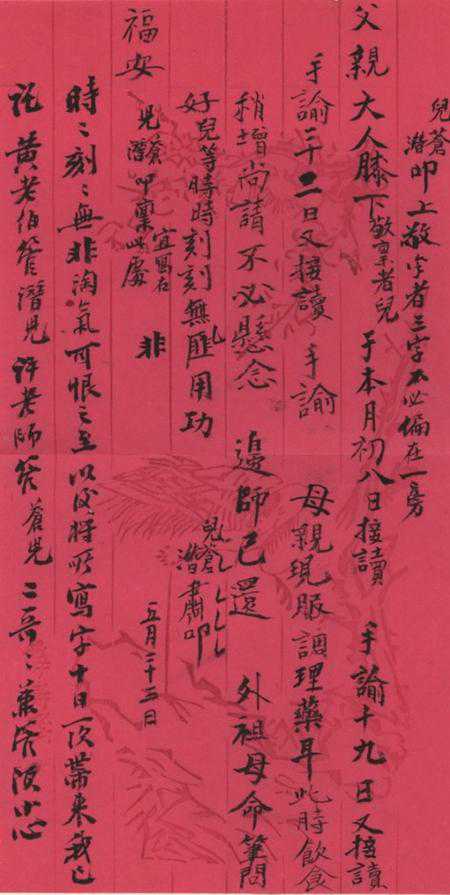 兒蒼潛叩上敬字者三字不必偏在一旁
父親大人膝下敬稟者兒于本月初八日接讀 手諭十九日又接讀
手諭二十二日又接讀 手諭 母親現服調理藥耳此時飲食
稍增尚請不必懸念 邊師已還 外祖母命筆問
好兒等時時刻刻無非用功
兒蒼潛肅叩
福安
宜寫在此處
兒蒼潛叩稟
非
五月二十二日
時時刻刻無非淘氣可恨之至以後將所寫字十日一次帶來我已
託黃老伯管潛兒許老師管蒼兒二哥哥兼管汝